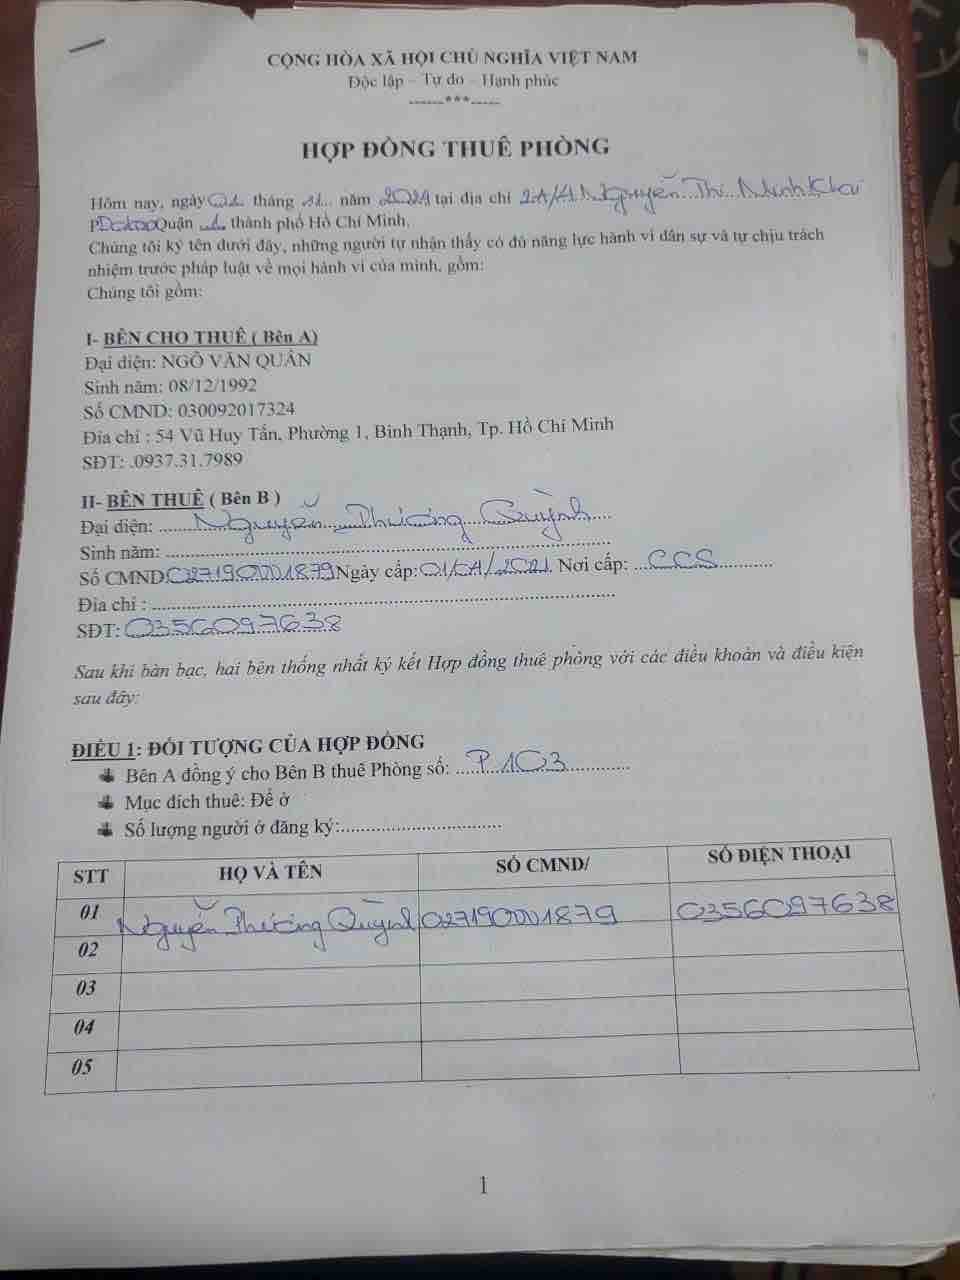 CỘNG HÒA XÃ HỘI CHỦ NGHĨA VIỆT NAM
Độc lập - Tự do - Hạnh phúc
------***-----
HỢP ĐỒNG THUÊ PHÒNG
Hôm nay, ngày tháng năm 2021 tại địa chỉ Nguyễn Thị Minh Khai
Quận 1 thành phố Hồ Chí Minh,
Chúng tôi ký tên dưới đây, những người tự nhận thấy có đủ năng lực hành vi dân sự và tự chịu trách
nhiệm trước pháp luật về mọi hành vi của mình, gồm:
Chúng tôi gồm:
I- BÊN CHO THUÊ ( Bên A)
Đại diện: NGÔ VĂN QUÂN
Sinh năm: 08/12/1992
Số CMND: 030092017324
Địa chỉ : 54 Vũ Huy Tấn, Phường 1, Bình Thạnh, Tp. Hồ Chí Minh
SĐT: .0937.31.7989
II- BÊN THUÊ ( Bên B )
Đại diện: Nguyễn Phương Quỳnh
Sinh năm:
Số CMND: 027190001879 Ngày cấp: 2021 Nơi cấp: CCS
Địa chỉ :
SĐT: 0356097638
Sau khi bàn bạc, hai bên thống nhất ký kết Hợp đồng thuê phòng với các điều khoản và điều kiện
sau đây:
ĐIỀU 1: ĐỐI TƯỢNG CỦA HỢP ĐỒNG
Bên A đồng ý cho Bên B thuê Phòng số: P103
Mục đích thuê: Để ở
Số lượng người ở đăng ký:
STT HỌ VÀ TÊN SỐ CMND/ SỐ ĐIỆN THOẠI
01 Nguyễn Phương Quỳnh 027190001879 0356097638
02
03
04
05
1